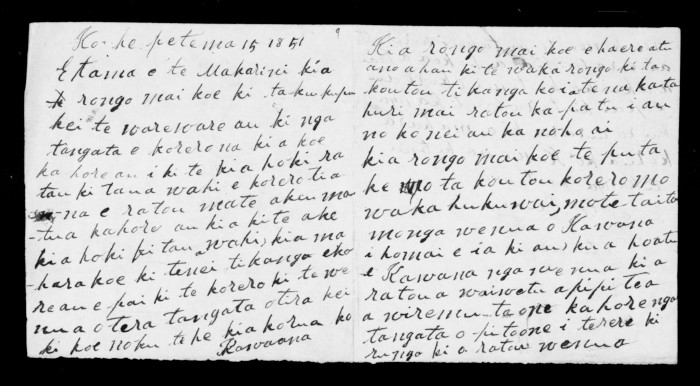 Ko he petema 15 1851
E tama e te Makarini kia
rongo mai koe ki taku kupu
kei te wareware au ki nga
tangata e korero na kia koe
ka hore au i ki te kia hoki ra
tau ki tana wahi e korero tia
na e ratou mate aku ma
-tua kahore au kia kite ake
kia hoki ki tau wahi, kia ma
harakoe ki tenei tikanga eko
re au e pai ki te korero ki te we
nua o tera tangata otira kei
ki koe noku te he kia korua ko
Kawana
Kia rongo mai koe e haere atu
ano ahau ki te wakarongo ki ta
koutou tikanga koia te na kata
huri mai ratou ka patu i au
no konei au ka noho ai
kia rongo mai koe te puta
ke mo ta koutou korero mo
waka hukuwai, mo te taita
mo nga wenua o Kawana
i homai e ia ki au, kua hoatu
e Kawana nga wenua ki a
ratou a waiwetu a pipitea
a wiremu taone kahore nga
tangata o pitoone i tere ki
runga ki a ratou wenua